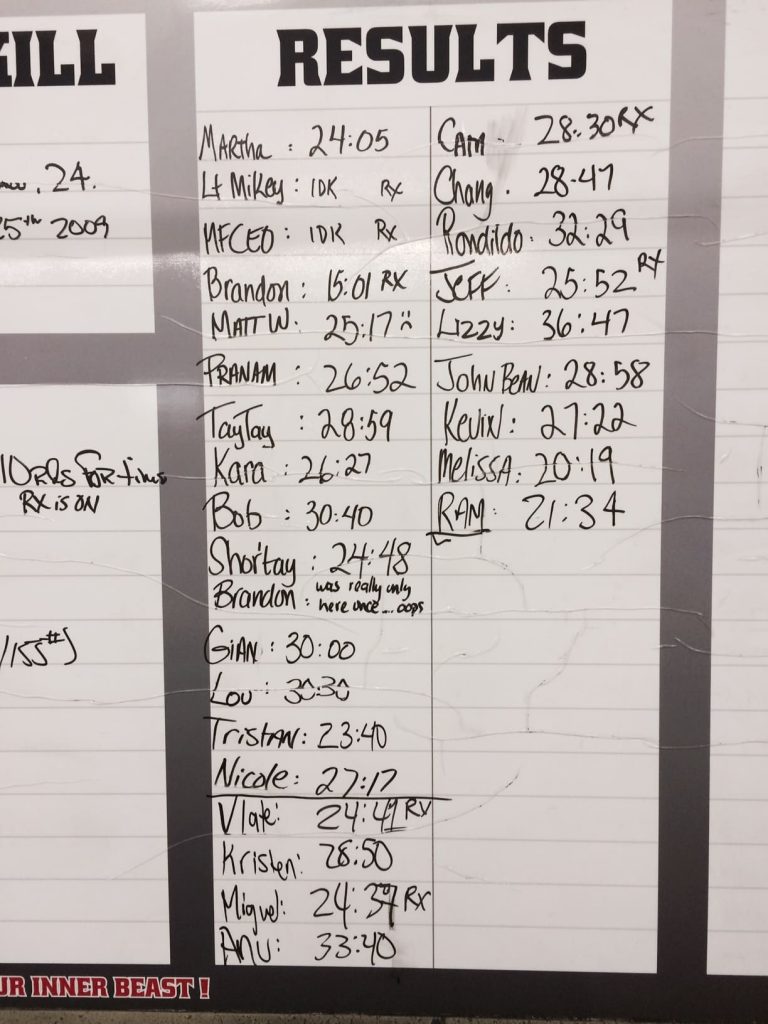 KILL
24.
5th 2009
10 RDS FOR time
RX is ON
/155#)
UR INNER BEAST!
RESULTS
MARTHA : 24:05
Lt Mikey : IDK RX
MFCEO : IDK RX
Brandon : 15:01 RX
MATT W : 25:17
PRANAM : 26:52
TayTay : 28:59
Kara : 26:27
Bob : 30:40
Shor'tay : 24:48
Brandon : was really only
here once... oops
GIAN : 30:00
Lou : 30:30
TRISTAN : 23:40
Nicole : 27:17
24:41 RX
Kristen: 28:50
Miguel: 24:39 RX
ANU: 33:40
CAM - 28:30 RX
Chang . 28-47
Rondildo . 32:29
JEFF : 25:52 RX
Lizzy : 36:47
JOHN BEAN : 28:58
Kevin : 27:22
MELISSA : 20:19
RAM : 21:34